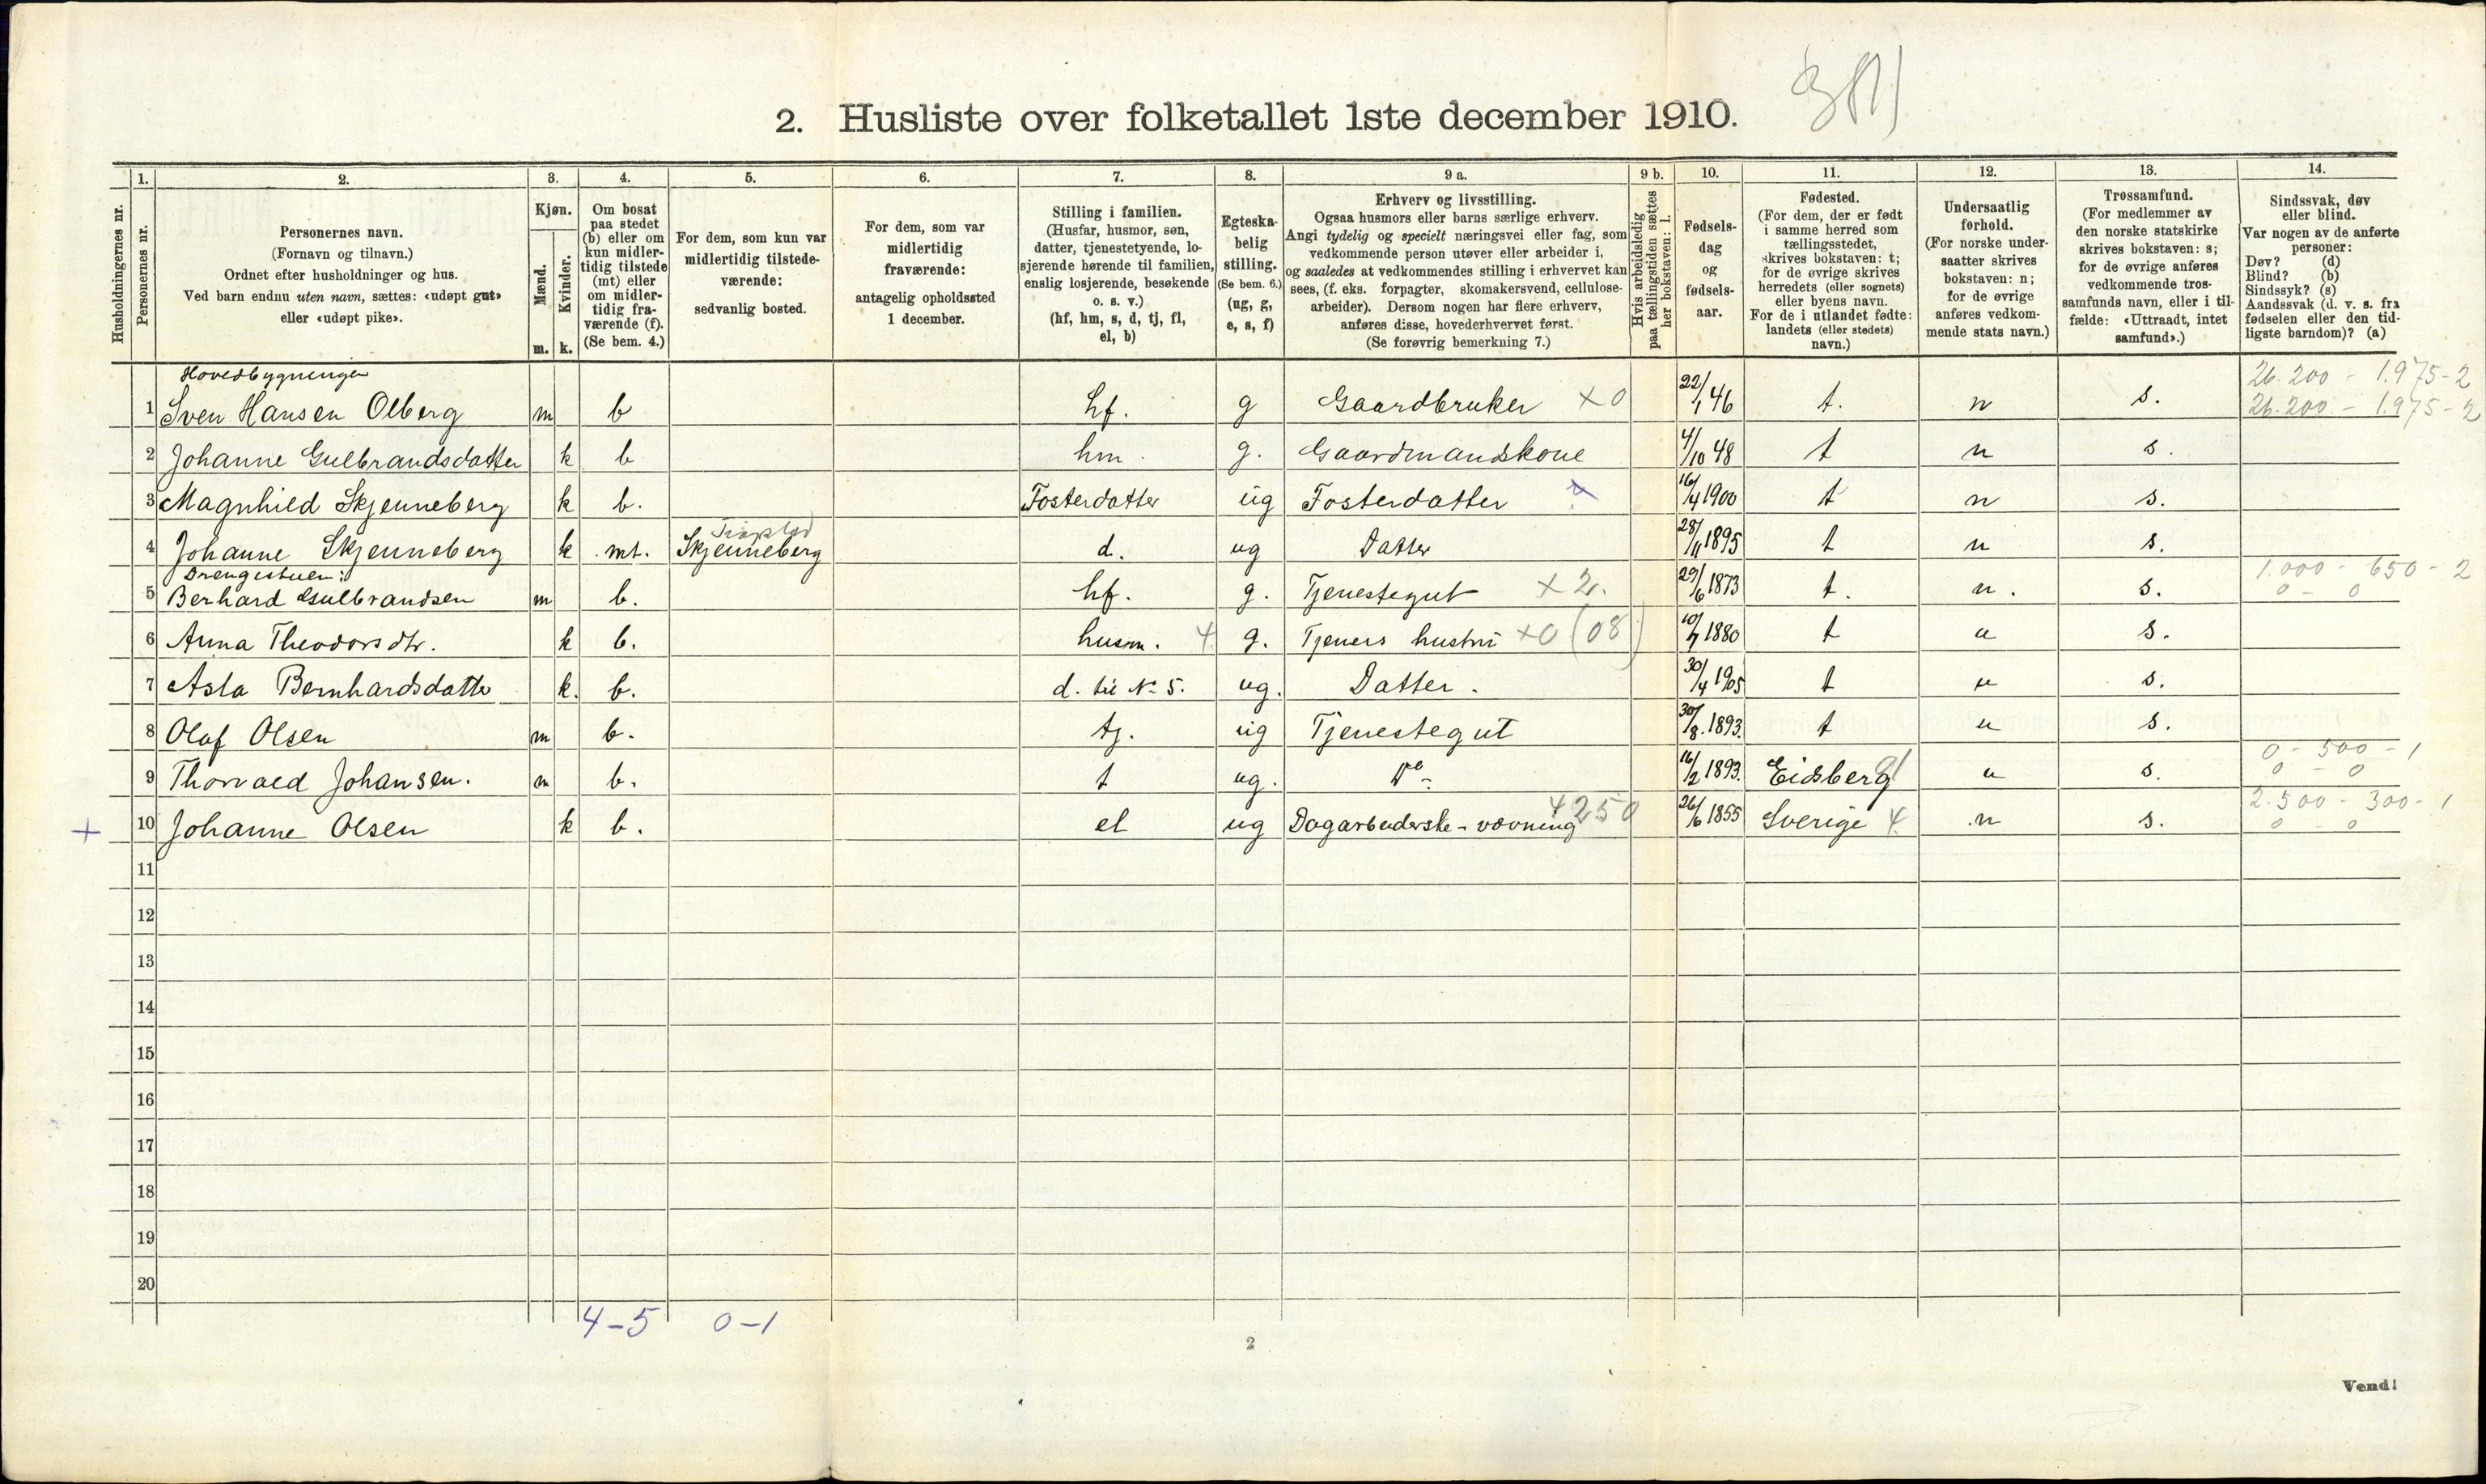 2. Husliste over folketallet 1ste december 1910.
Husholdningernes nr.
1.
Personernes nr.
2.
Personernes navn.
(Fornavn og tilnavn.)
Ordnet efter husholdninger og hus.
Ved barn endnu uten navn, sættes: «udøpt gut»
eller «udøpt pike».
3.
Kjøn.
Mænd.
Kvinder.
m. k.
4.
Om bosat
paa stedet
(b) eller om
kun midler-
tidig tilstede
(mt) eller
om midler-
tidig fra-
værende (f).
(Se bem. 4.)
5.
For dem, som kun var
midlertidig tilstede-
værende:
sedvanlig bosted.
6.
For dem, som var
midlertidig
fraværende:
antagelig opholdssted
1 december.
7.
Stilling i familien.
(Husfar, husmor, søn,
datter, tjenestetyende, lo-
sjerende hørende til familien,
enslig losjerende, besøkende
o. s. v.)
(hf, hm, s, d, tj, fl,
el, b)
8.
Egteska-
belig
stilling.
(Se bem. 6.)
(ug, g,
e, s, f)
9 a.
Erhverv og livsstilling.
Ogsaa husmors eller barns særlige erhverv.
Angi tydelig og specielt næringsvei eller fag, som
vedkommende person utøver eller arbeider i,
og saaledes at vedkommendes stilling i erhvervet kan
sees, (f. eks. forpagter, skomakersvend, cellulose-
arbeider). Dersom nogen har flere erhverv,
anføres disse, hovederhvervet først.
(Se forøvrig bemerkning 7.)
9 b.
Hvis arbeidsledig
paa tællingstiden sættes
her bokstaven: l.
10.
Fødsels-
dag
og
fødsels-
aar.
11.
Fødested.
(For dem, der er født
i samme herred som
tællingsstedet,
skrives bokstaven: t;
for de øvrige skrives
herredets (eller sognets)
eller byens navn.
For de i utlandet fødte:
landets (eller stedets)
navn.)
12.
Undersaatlig
forhold.
(For norske under-
saatter skrives
bokstaven: n;
for de øvrige
anføres vedkom-
mende stats navn.)
13.
Trossamfund.
(For medlemmer av
den norske statskirke
skrives bokstaven: s;
for de øvrige anføres
vedkommende tros-
samfunds navn, eller i til-
fælde: «Uttraadt, intet
samfund».)
14.
Sindssvak, døv
eller blind.
Var nogen av de anførte
personer:
Døv? (d)
Blind? (b)
Sindssyk? (s)
Aandssvak (d. v. s. fra
fødselen eller den tid-
ligste barndom)? (a)
Hovedbygningen 26.200 - 1.975-2
1 Sven Hansen Olberg m b hf. g Gaardbruker x 0 22/1 46 t. n s. 26.200 - 1.975-2
2 Johanne Gulbrandsdatter k b hm. g. Gaardmandskone 4/10 48 t n s.
3 Magnhild Skjenneberg k b. Fosterdatter ug Fosterdatter 16/4 1900 t n s.
4 Johanne Skjenneberg k mt. Skjenneberg d. ug Datter 28/11 1895 t n s.
Drengestuen: 1.000 - 650 - 2
5 Berhard Gulbrandsen m b. hf. g. Tjenestegut x 2. 29/6 1873 t. n. s. 0 - 0
6 Anna Theodorsdtr. k b. husm. 4 g. Tjeners hustru x0 (08) 10/7 1880 t n s.
7 Asta Bernhardsdatter k. b. d. til No 5. ug. Datter. 30/4 1905 t n s.
8 Olaf Olsen m b. tj. ug Tjenestegut 30/8. 1893. t n s.
0 - 500 - 1
9 Thorvald Johansen. m b. t ug. Do 16/2 1893. Eidsberg n s. 0 - 0
4250 2.500 - 300 - 1
+ 10 Johanne Olsen k b. el ug Dagarbeiderske - vævning 26/6 1855 Sverige 4. n s. 0 - 0
11
12
13
14
15
16
17
18
19
20
4-5 0-1
2
Vend!